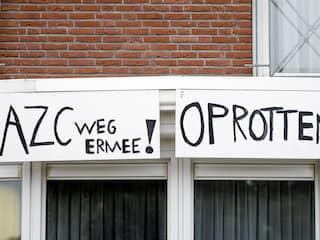 AZC WEG
ERMEE!
OPROTTEN